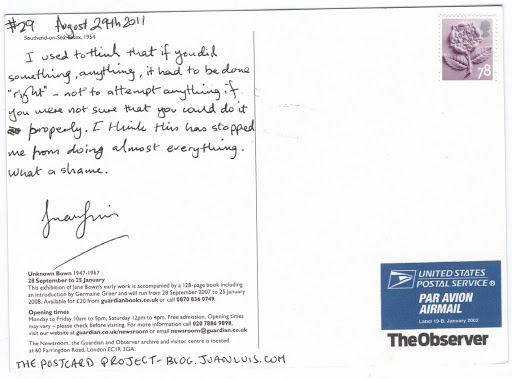 #29 August 29th 2011
Southend-on-Sea, Essex, 1954
I used to think that if you did
something, anything, it had to be done
"right" - not to attempt anything if
you were not sure that you could do it
properly. I think this has stopped
me from doing almost everything.
What a shame.
Juan Luis
Unknown Bown 1947-1967
28 September to 25 January
This exhibition of Jane Bown's early work is accompanied by a 128-page book including
an introduction by Germaine Greer and will run from 28 September 2007 to 25 January
2008. Available for £20 from guardianbooks.co.uk or call 0870 836 0749.
Opening times
Monday to Friday 10am to 5pm, Saturday 12pm to 4pm. Free admission. Opening times
may vary – please check before visiting. For more information call 020 7886 9898,
visit our website at guardian.co.uk/newsroom or email newsroom@guardian.co.uk
The Newsroom, the Guardian and Observer archive and visitor centre is located
at 60 Farringdon Road, London EC1R 3GA.
THE POSTCARD PROJECT - BLOG.JUANLUIS.COM
78
UNITED STATES
POSTAL SERVICE®
PAR AVION
AIRMAIL
Label 19-B, January 2002
TheObserver